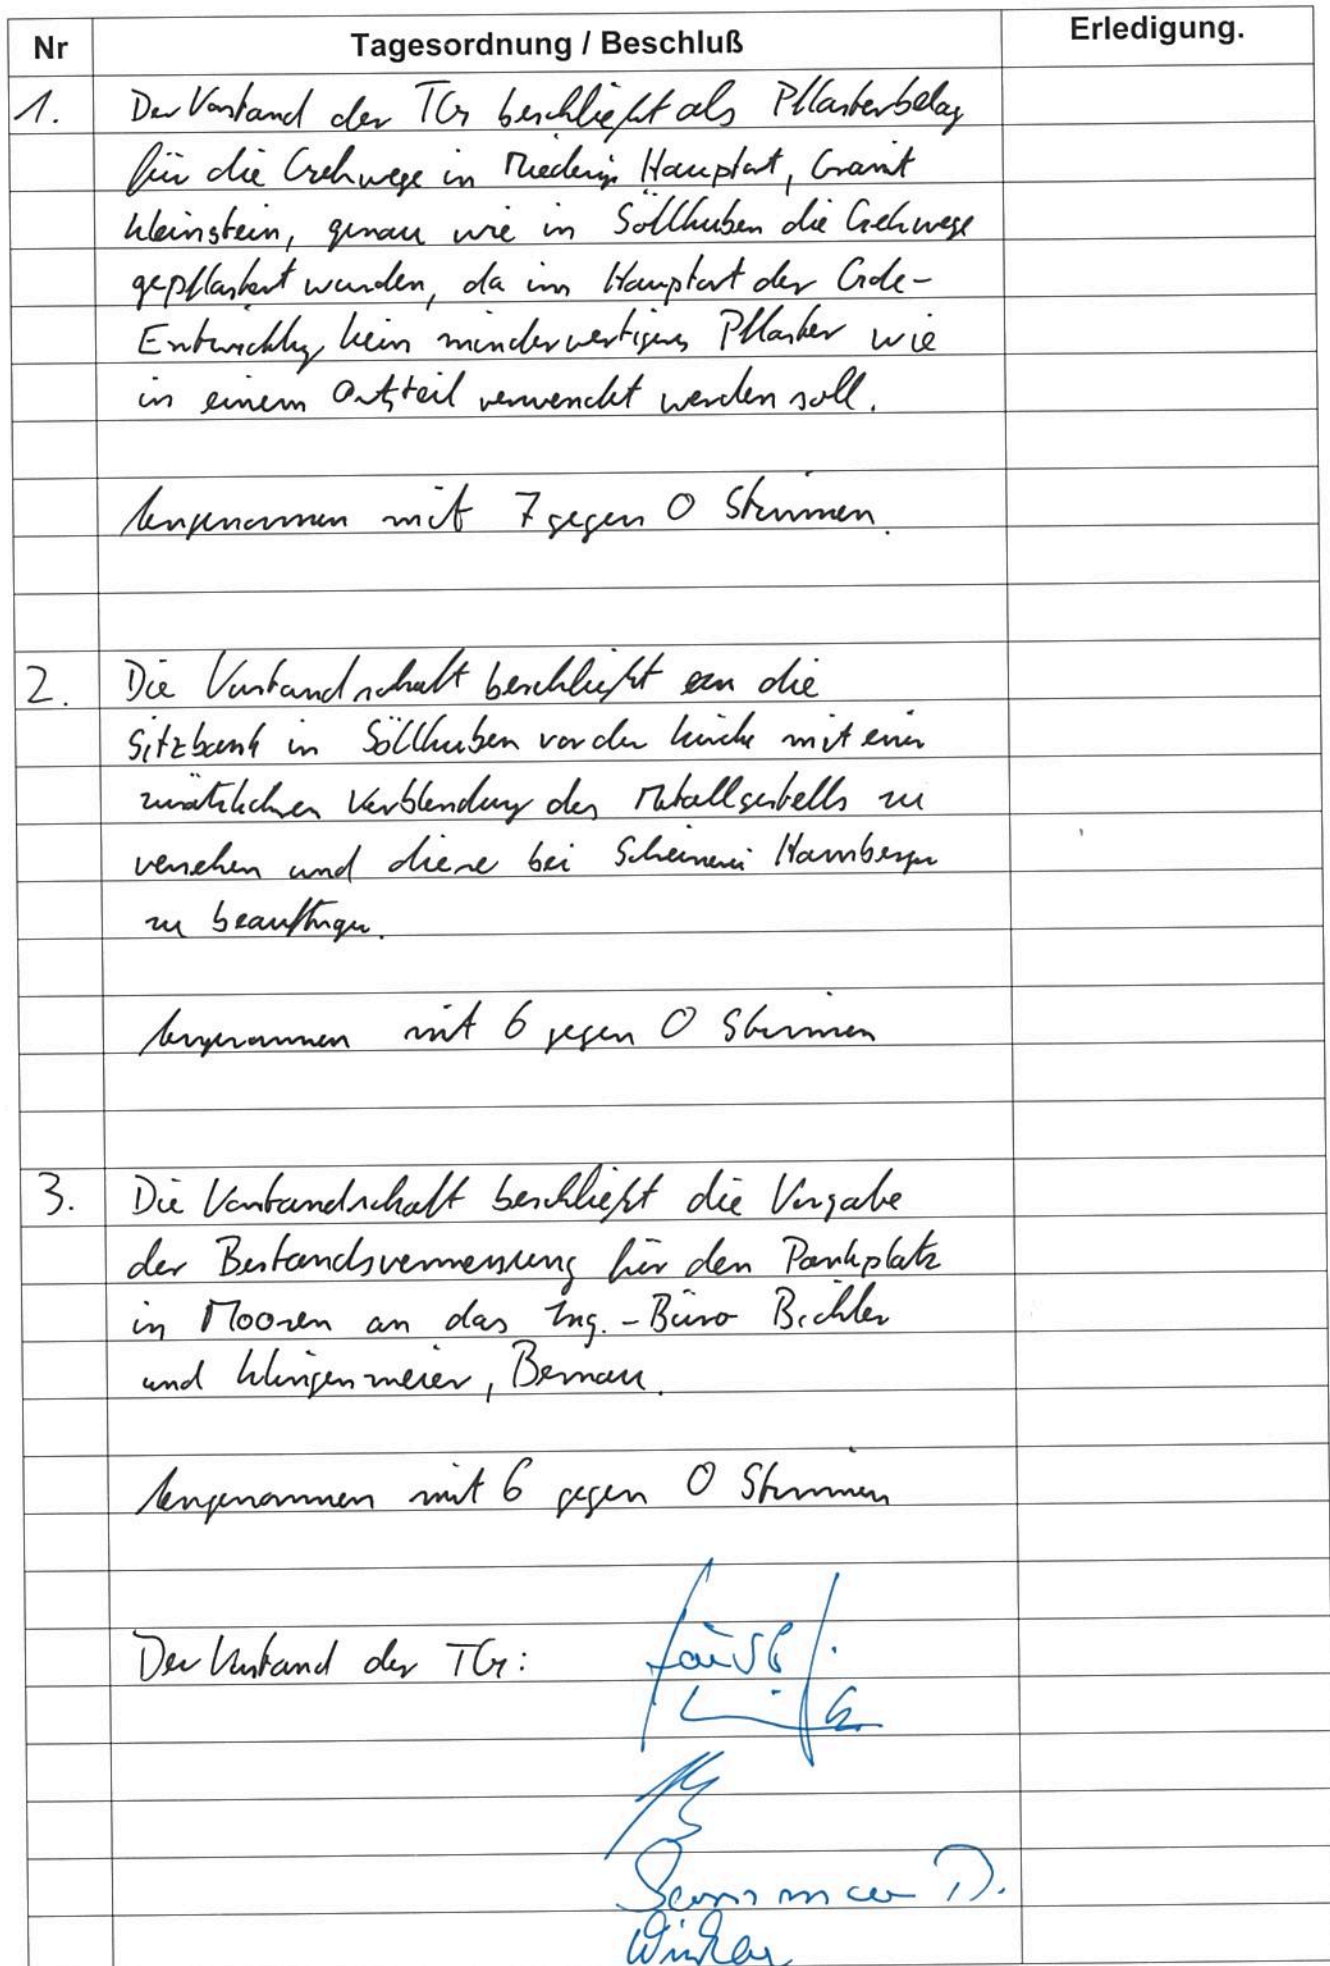 Nr Tagesordnung / Beschluß Erledigung.
1. Der Vorstand der TG beschließt als Pflasterbelag
für die Gehwege in Riedering Hauptort, Granit
Kleinstein, genau wie in Söllhuben die Gehwege
gepflastert wurden, da im Hauptort der Gde-
Entwicklg kein minderwertigeres Pflaster wie
in einem Ortsteil verwendet werden soll.
Angenommen mit 7 gegen 0 Stimmen.
2. Die Vorstandschaft beschließt die
Sitzbank in Söllhuben vor der Kirche mit einer
zusätzlichen Verblendung des Metallgestells zu
versehen und diese bei Scheinerei Hamberger
zu beauftragen.
Angenommen mit 6 gegen 0 Stimmen
3. Die Vorstandschaft beschließt die Vergabe
der Bestandsvermessung für den Parkplatz
in Moosen an das Ing.-Büro Bichler
und Klingenmeier, Bernau.
Angenommen mit 6 gegen 0 Stimmen
Der Vorstand der TG:
D.